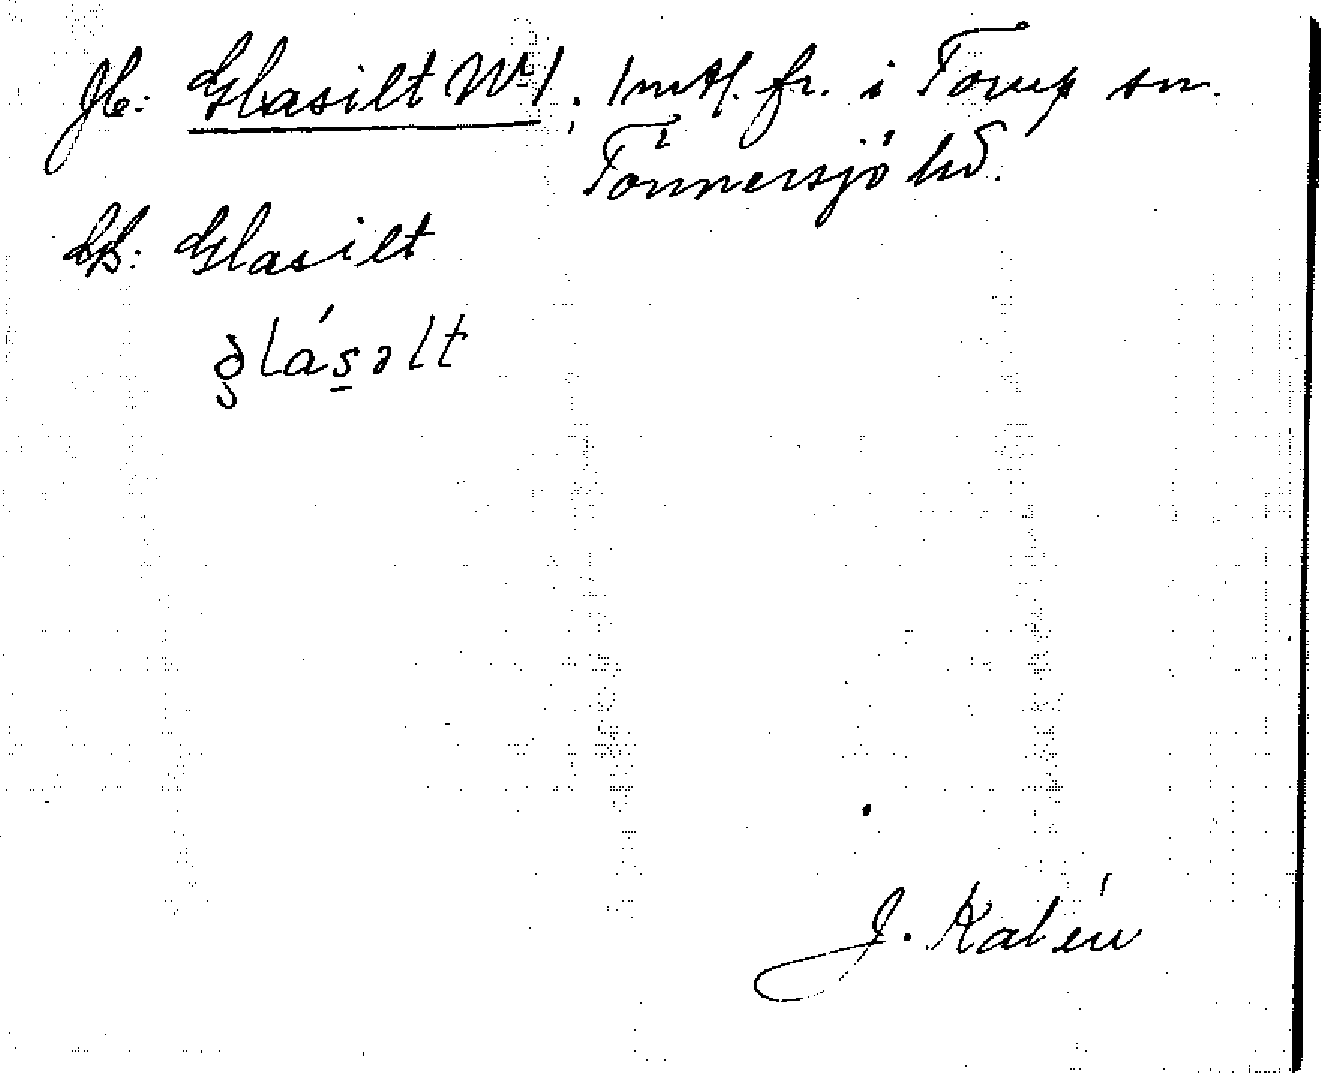 Jb: Glasilt No 1; 1 mtl. fr. i Torup sn.
Tönnersjö hd.
Glasilt
glásəlt
J. Kalén